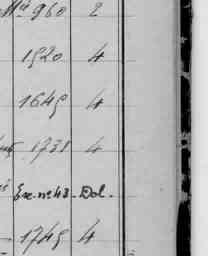 No 960 2
1520 4
1645 4
1731 4
Ex. no. 43. Dol.
1745 4